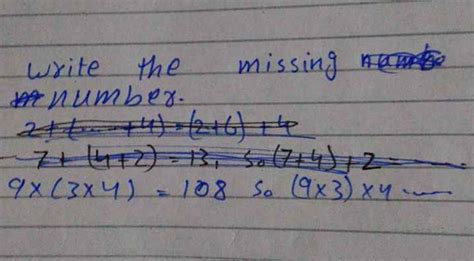 write the missing
number.
2+(... +4) = (2+6) +4
7+ (4+2) = 13, so (7+4) + 2 =
9×(3×4) = 108 so (9×3)×4 ......